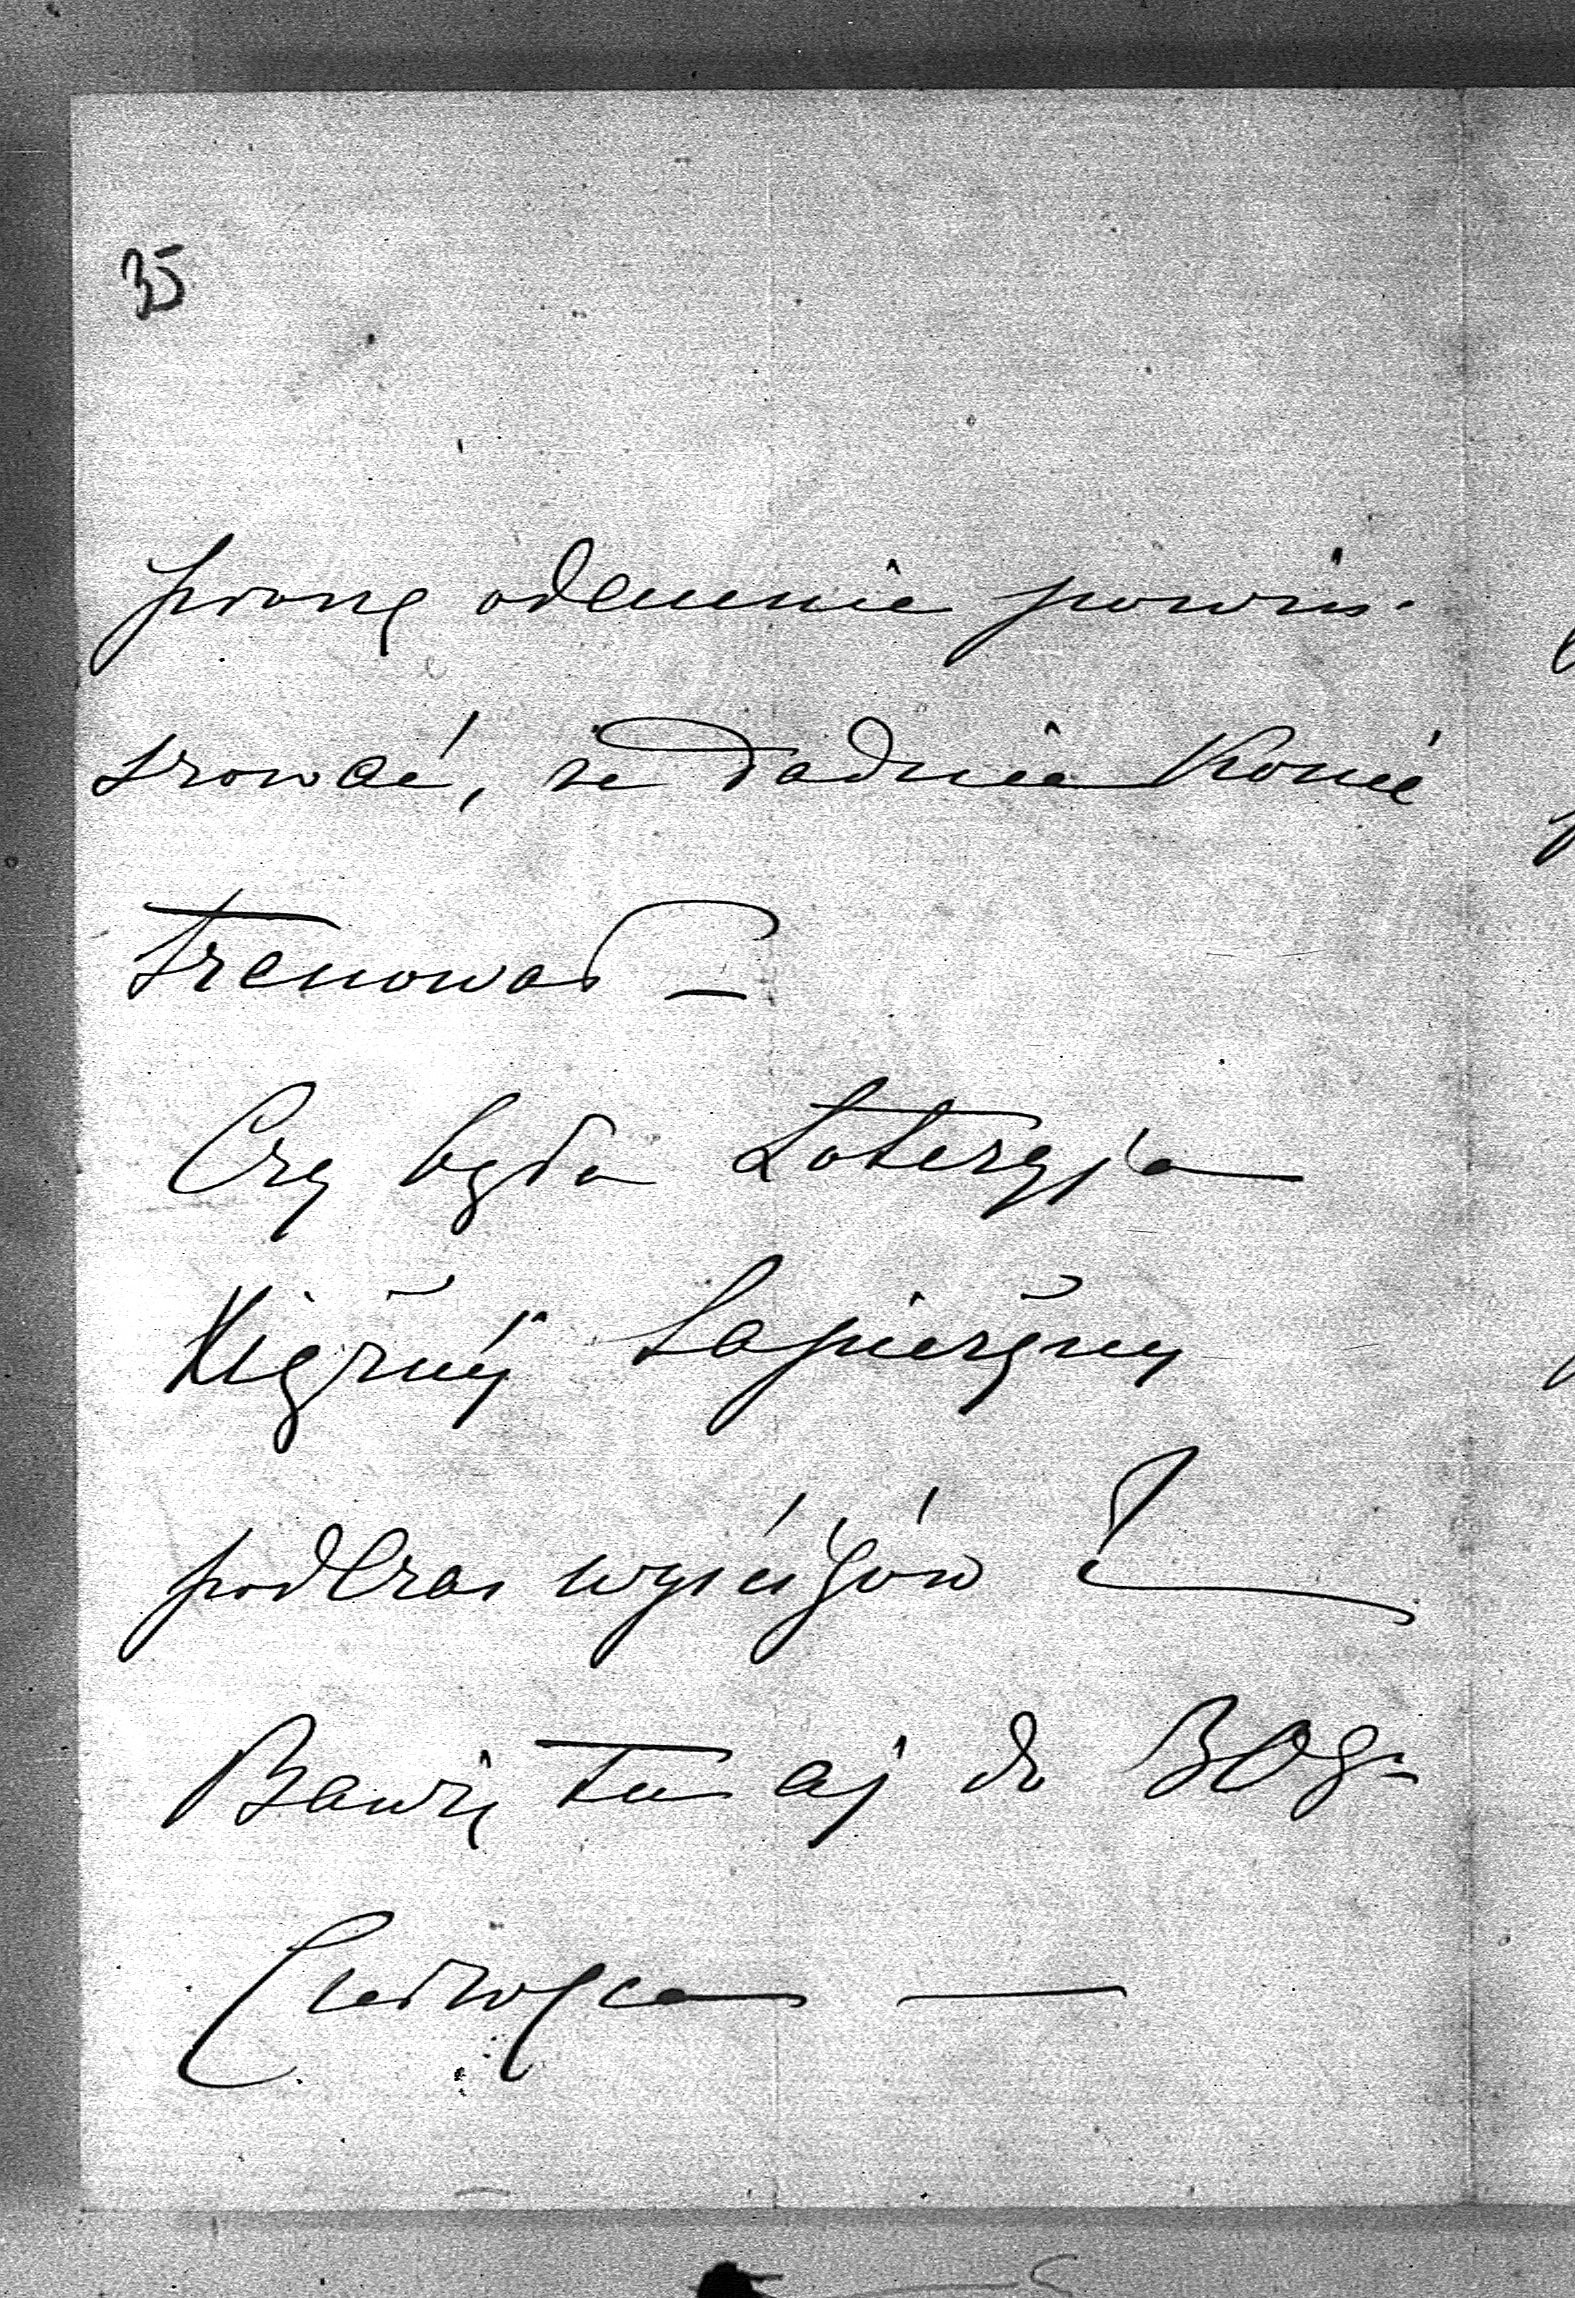 35
proszę odemnie powin-
szować, że ładnie Konie
trenował –
Czy była Loteryja
Xiężnej Sapieżyny
podczas wyścigów ?
Bawię tutaj do 30g-
Czerwca —